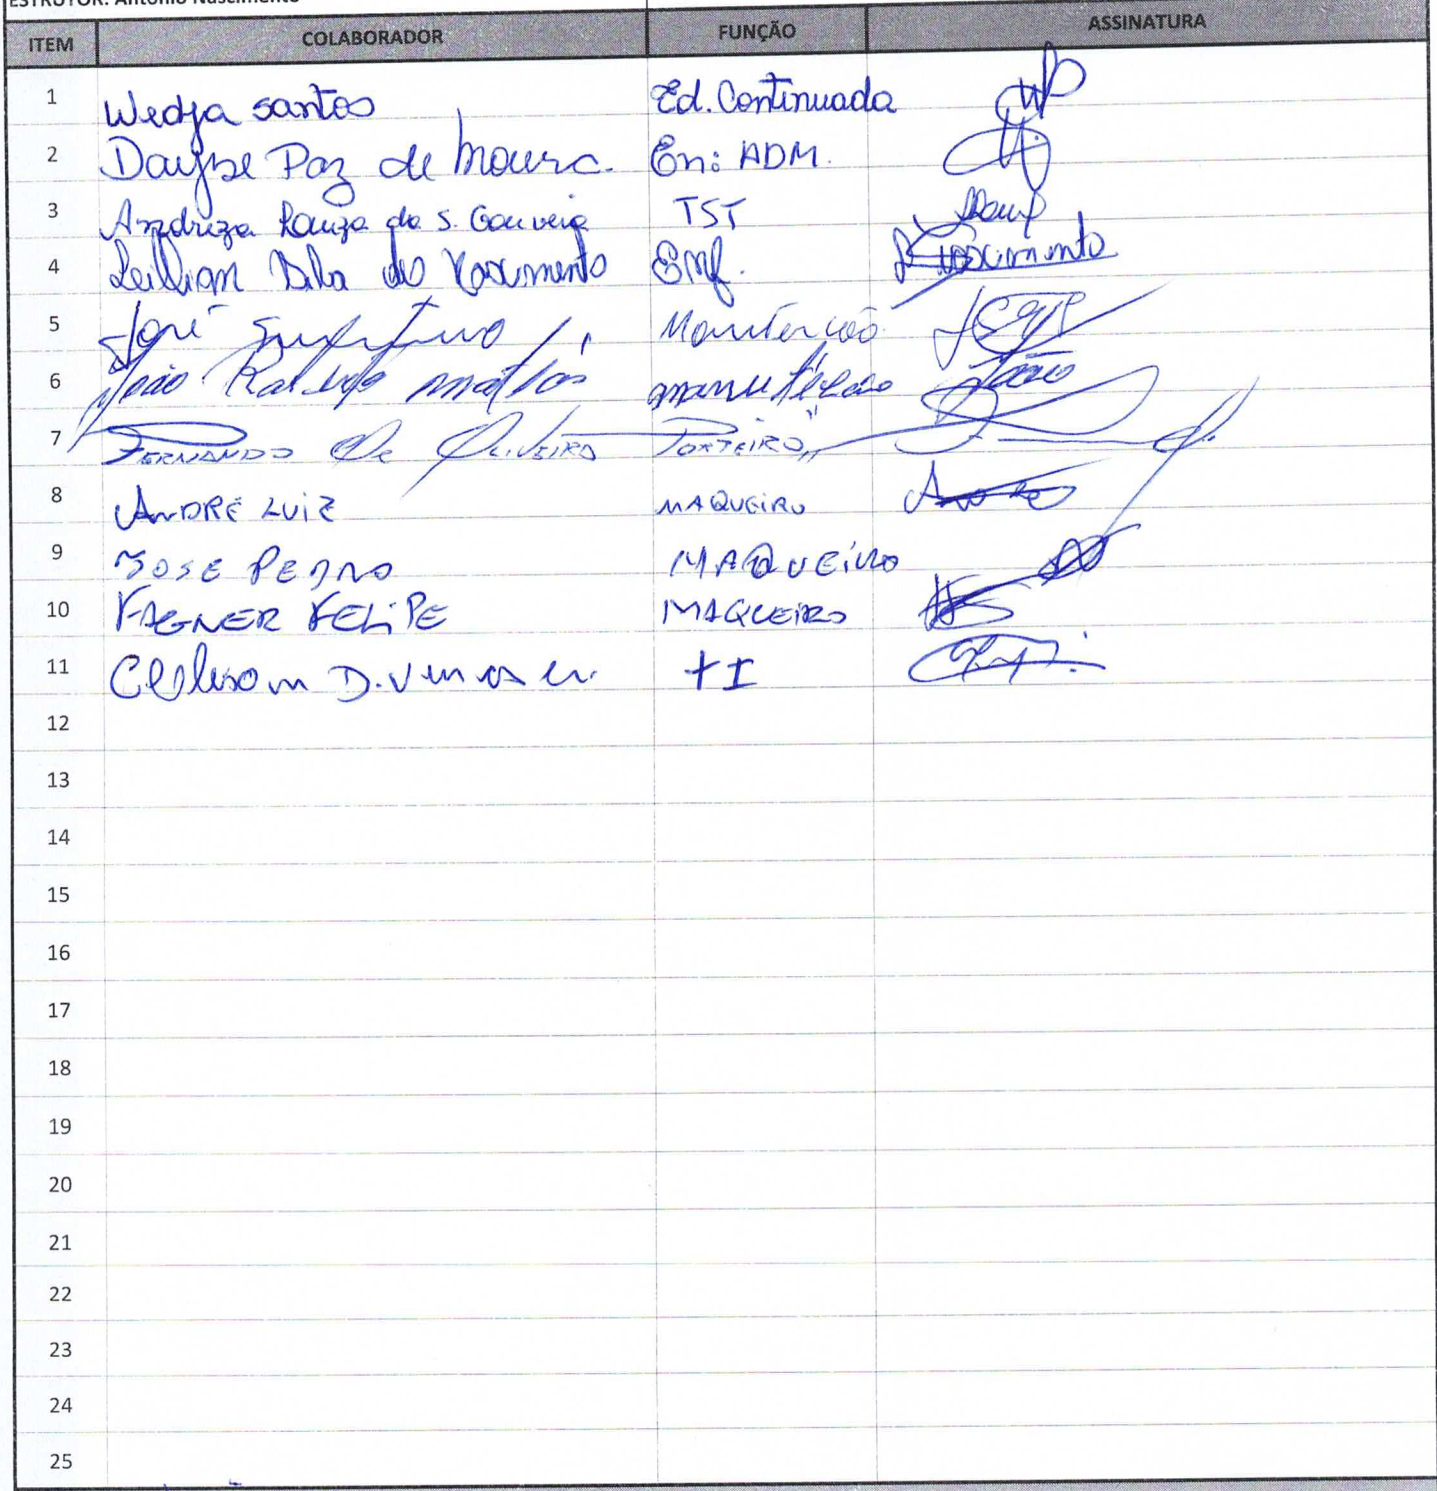 ESTRUTOR: Antonio Nascimento
ITEM COLABORADOR FUNÇÃO ASSINATURA
1 Wedja santos Ed. Continuada
2 Dayse Paz de Moura. En: ADM.
3 Andreza Rauza da S. Gouveia TST
4 do Nascimento Enf. Nascimento
5 José
6 João João
7 FERNANDO De OLIVEIRA PORTEIRO
8 ANDRÉ LUIZ MAQUEIRO
9 JOSE PEDRO MAQUEIRO
10 VAGNER FELIPE MAQUEIRO
11 TI
12
13
14
15
16
17
18
19
20
21
22
23
24
25